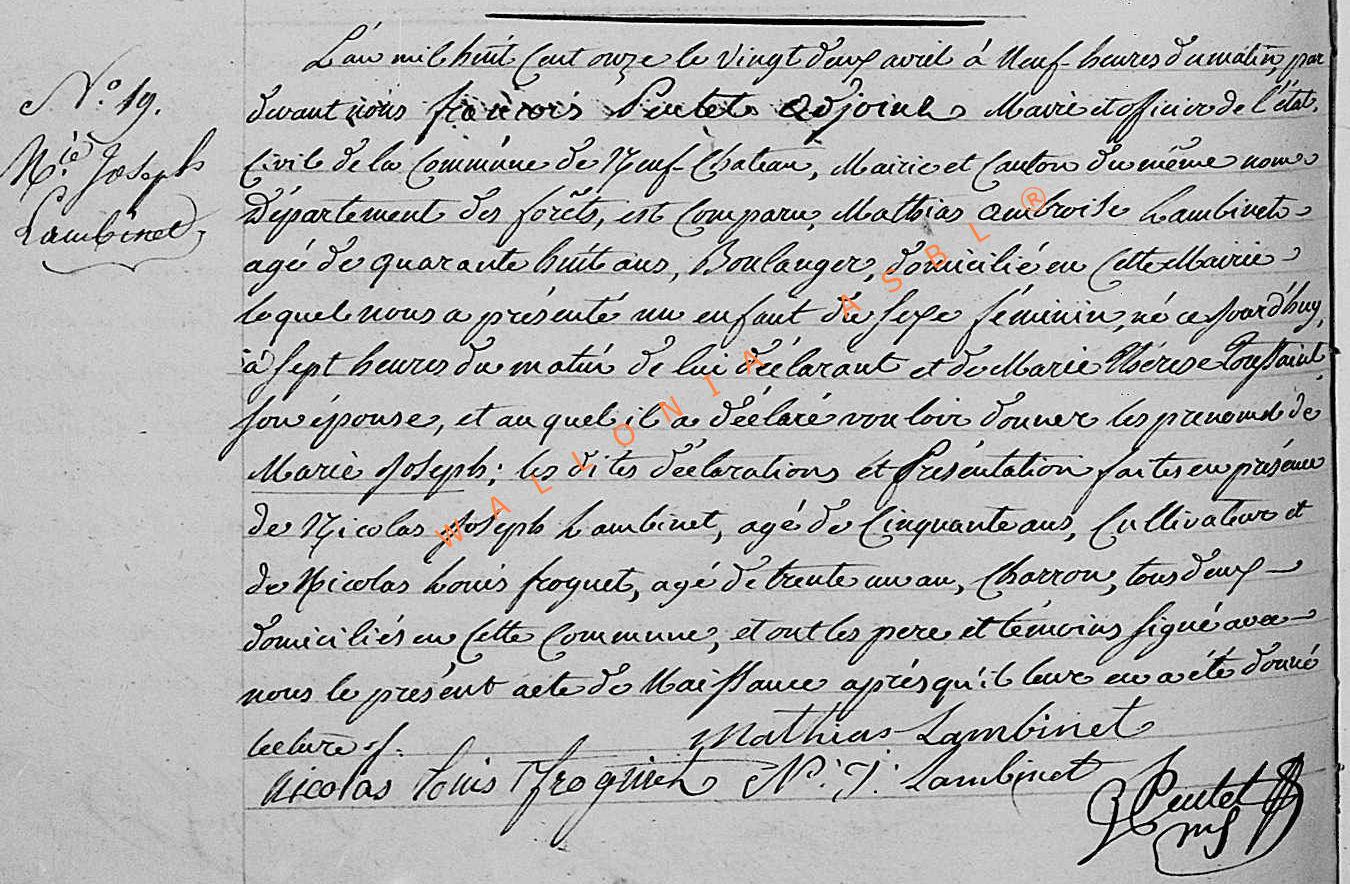 N.o 19.
M.ie Joseph
Lambinet
L'an mil huit Cent onze le vingt deux avril à Neuf-heures du matin, par
devant nous françois Pentet adjoint Maire et officier de l'état-
Civile de la Commune de Neuf-Chateau, Mairie et Canton du même nom
Département des forêts, est Comparu, Mathias ambroise Lambinet
agé de quarante huit ans, Boulanger, domicilié en Cette Mairie
lequel nous a présenté un enfant du sexe féminin, né ce jourd'huy,
à sept heures du matin de lui déclarant et de Marie Thérese Toussaint
son épouse, et au quel il a déclaré vouloir donner les prenoms de
Marie Joseph; les dites déclarations et Présentation faites en présence
de Nicolas Joseph Lambinet, agé de Cinquante ans, Cultivateur et
de Nicolas Louis froguet, agé de trente un an, Charron, tous deux
domiciliés en Cette Commune, et ont les pere et témoins signé avec
nous le présent acte de Naissance après qu'il leur en a été donné
lecture ./.
Mathias Lambinet
Nicolas louis N: J: Lambinet
Pentet
WALLONIA ASBL ®